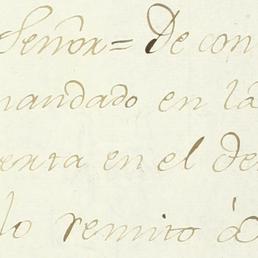 Señor = De con
mandado en la
enta en el de
lo remito â